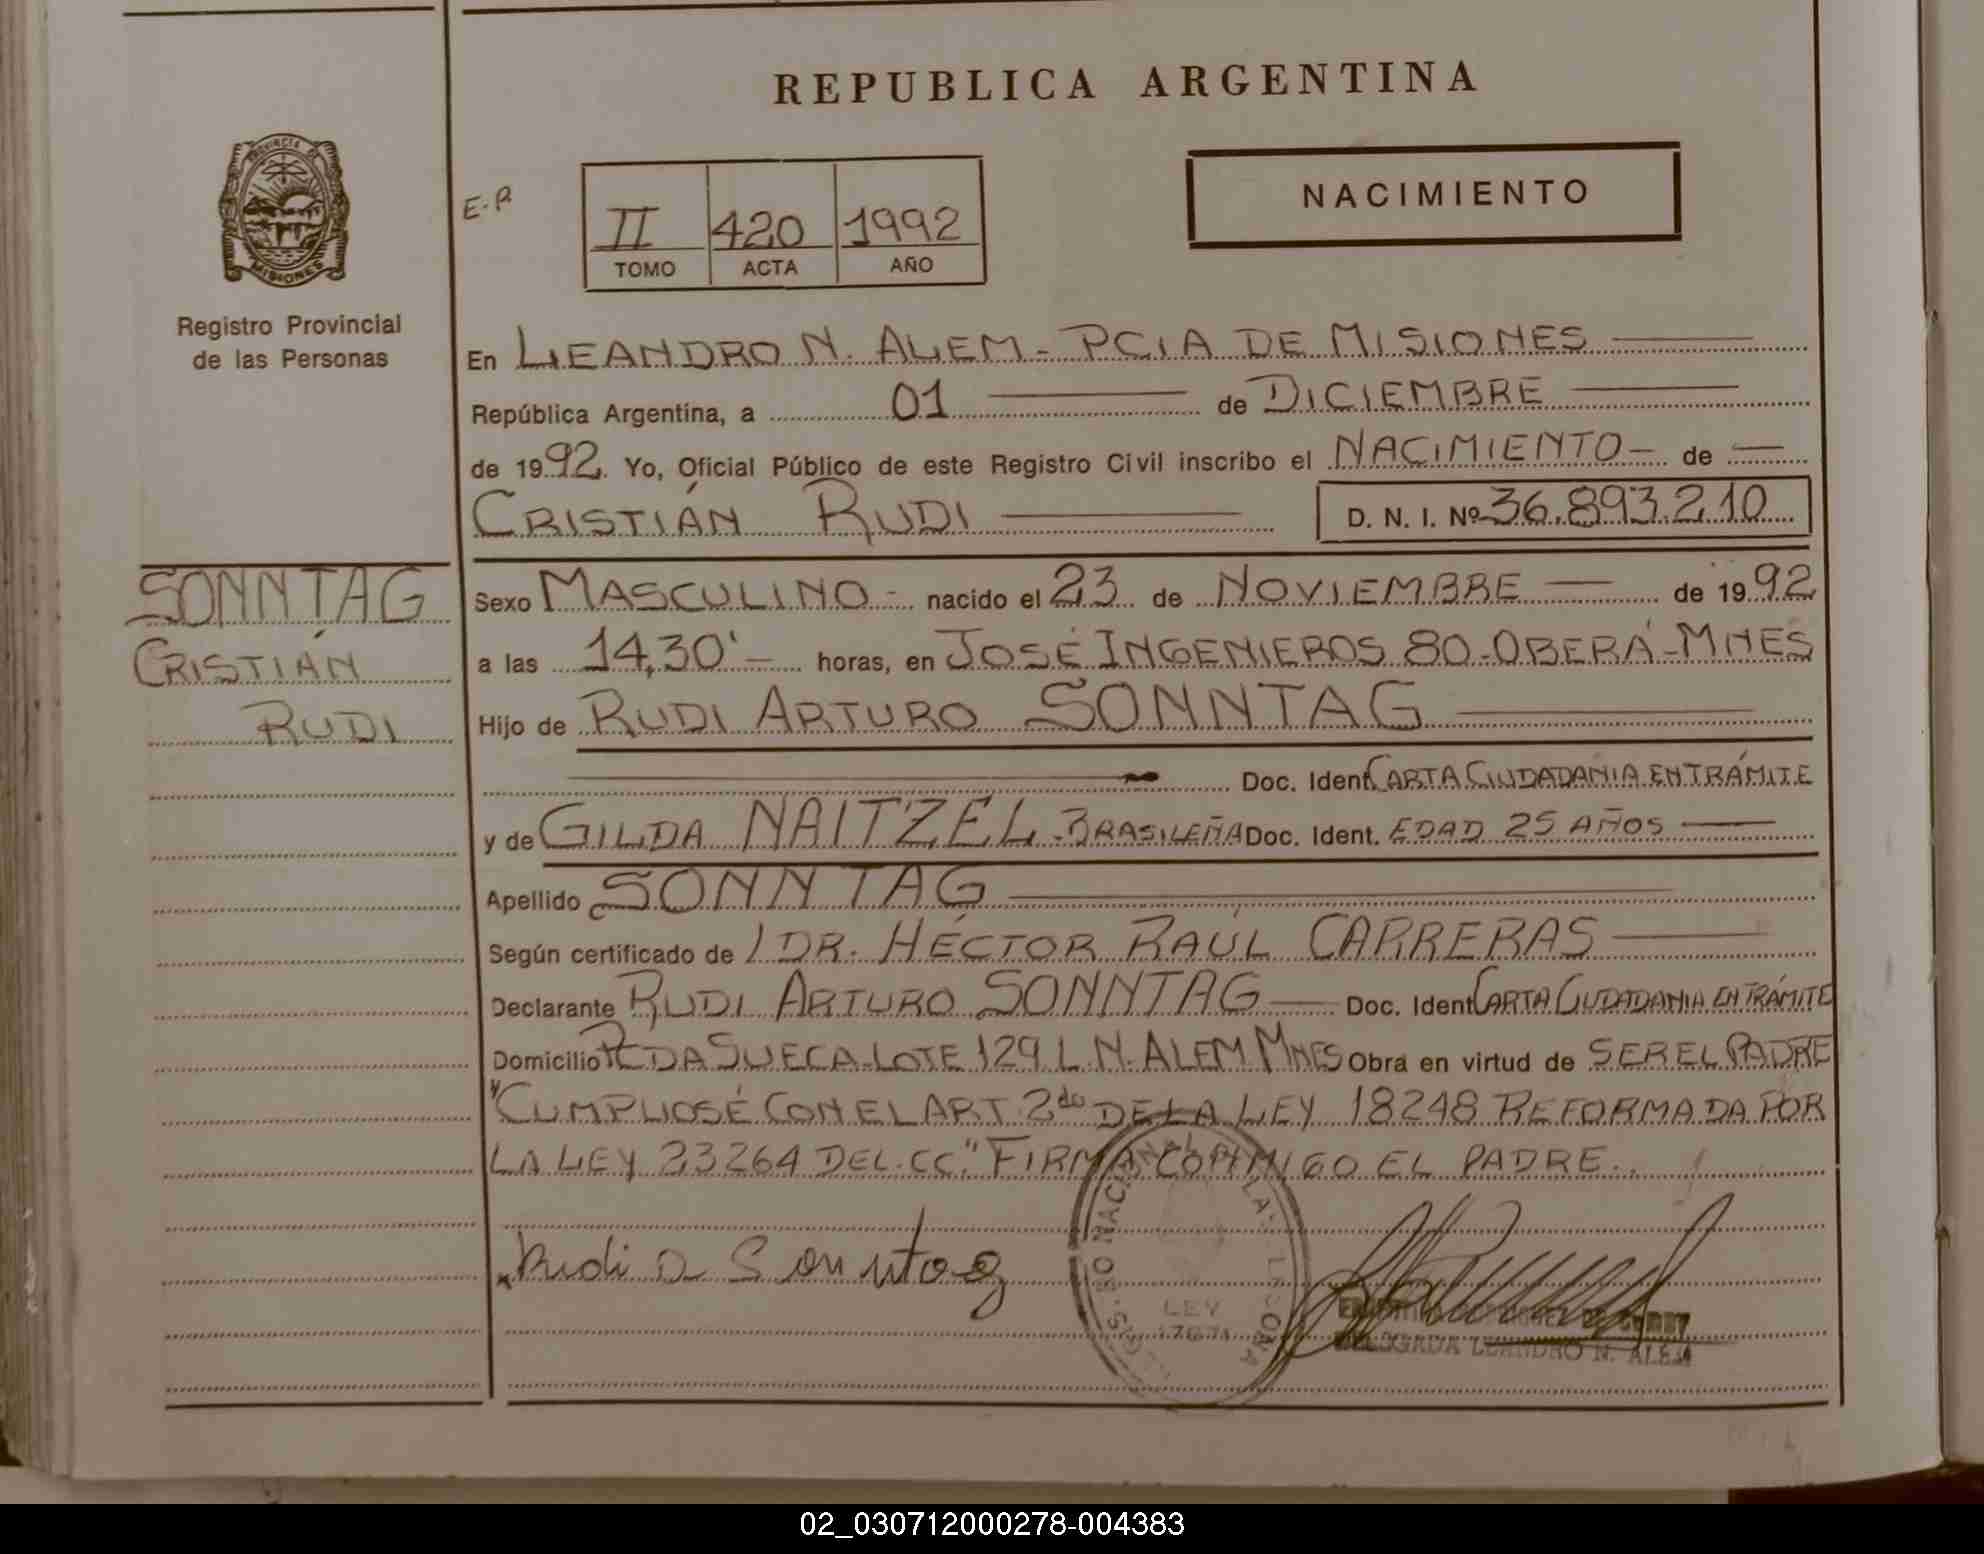 REPUBLICA ARGENTINA
PROVINCIA DE
MISIONES
Registro Provincial
de las Personas
E-R
II 420 1992
TOMO ACTA AÑO
NACIMIENTO
En LEANDRO N. ALEM - PCIA DE MISIONES
República Argentina, a 01 de DICIEMBRE
de 1992. Yo, Oficial Público de este Registro Civil inscribo el NACIMIENTO - de
CRISTIÁN RUDI D. N. I. Nº 36.893.210
SONNTAG
CRISTIÁN
RUDI
Sexo MASCULINO - nacido el 23 de NOVIEMBRE de 1992
a las 14,30' - horas, en JOSÉ INGENIEROS 80 - OBERÁ - MNES
Hijo de RUDI ARTURO SONNTAG
Doc. Ident. CARTA CIUDADANIA EN TRÁMITE
y de GILDA NAITZEL - BRASILEÑA Doc. Ident. EDAD 25 AÑOS
Apellido SONNTAG
Según certificado de / DR. HÉCTOR RAÚL CARRERAS
Declarante RUDI ARTURO SONNTAG Doc. Ident. CARTA CIUDADANIA EN TRÁMITE
Domicilio PCDA SUECA - LOTE 129 L. N. ALEM MNES Obra en virtud de SER EL PADRE
"CUMPLIOSÉ CON EL ART. 2do DE LA LEY 18248 REFORMADA POR
LA LEY 23264 DEL CC." FIRMA CONMIGO EL PADRE.
Rudi A Sonntag
LEY
17671
DELEGADA LEANDRO N. ALEM
02_030712000278-004383